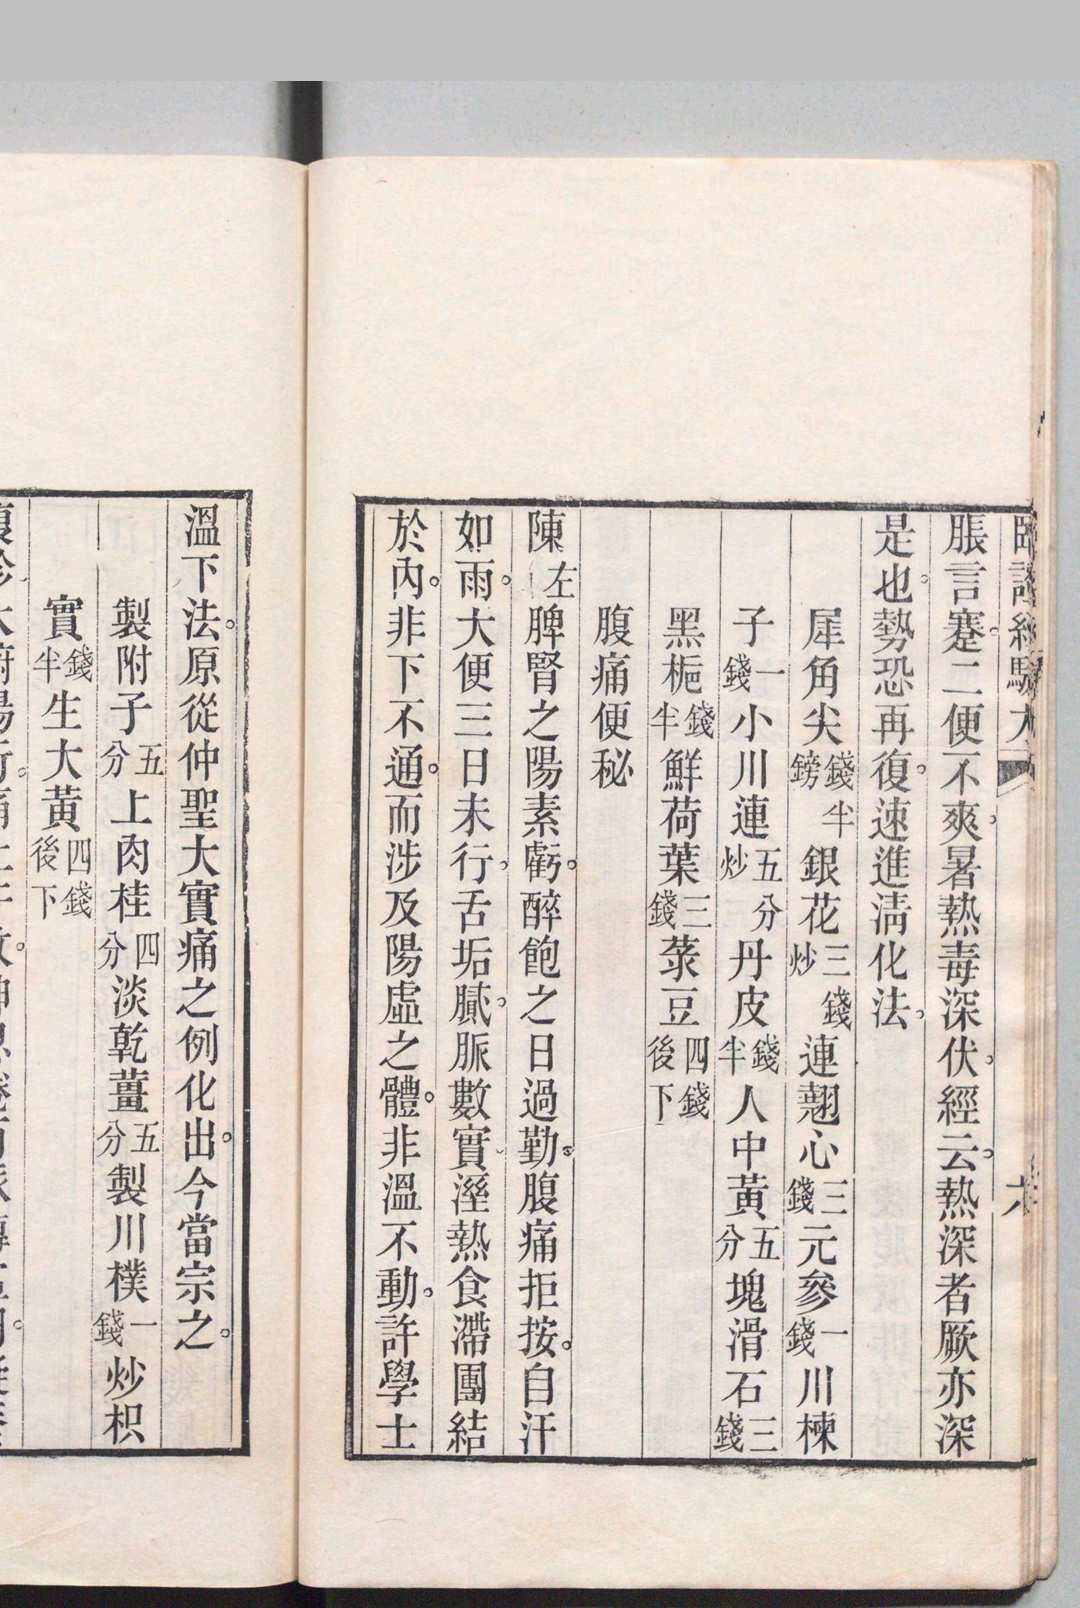 臨證經驗方
六
脹言蹇二便不爽暑熱毒深伏經云熱深者厥亦深
是也勢恐再復速進淸化法
犀角尖錢半鎊銀花三錢炒連翹心三錢元參一錢川楝
子一錢小川連五分炒丹皮錢半人中黃五分塊滑石三錢
黑梔錢半鮮荷葉三錢菉豆四錢後下
腹痛便秘
陳左脾腎之陽素虧醉飽之日過勤腹痛拒按自汗
如雨大便三日未行舌垢膩脈數實溼熱食滯團結
於內非下不通而涉及陽虛之體非溫不動許學士
溫下法原從仲聖大實痛之例化出今當宗之
製附子五分上肉桂四分淡乾薑五分製川樸一錢炒枳
實錢半生大黃四錢後下